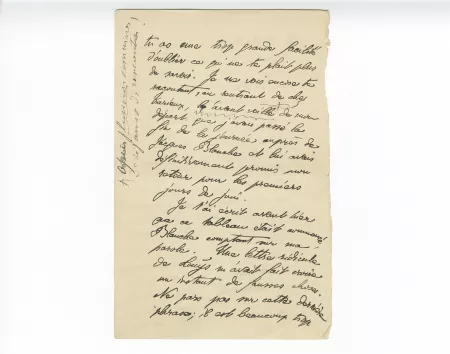 tu as une trop grande facilité
d'oublier ce qui ne te plaît plus
de savoir. Je me vois encore te
racontant, en rentrant de chez
l'avant veille de mon
départ, que j'avais passé la
fin de la journée auprès de
Jacques Blanche et lui avais
définitivement promis mon
retour pour les premiers
jours de juin.
Je t'ai écrit avant hier
que ce tableau était commencé
Blanche comptant sur ma
parole. Une lettre ridicule
de Louÿs m'avait fait croire
un instant de fausses choses.
Ne pare pas sur cette dernière
phrase; il est beaucoup trop